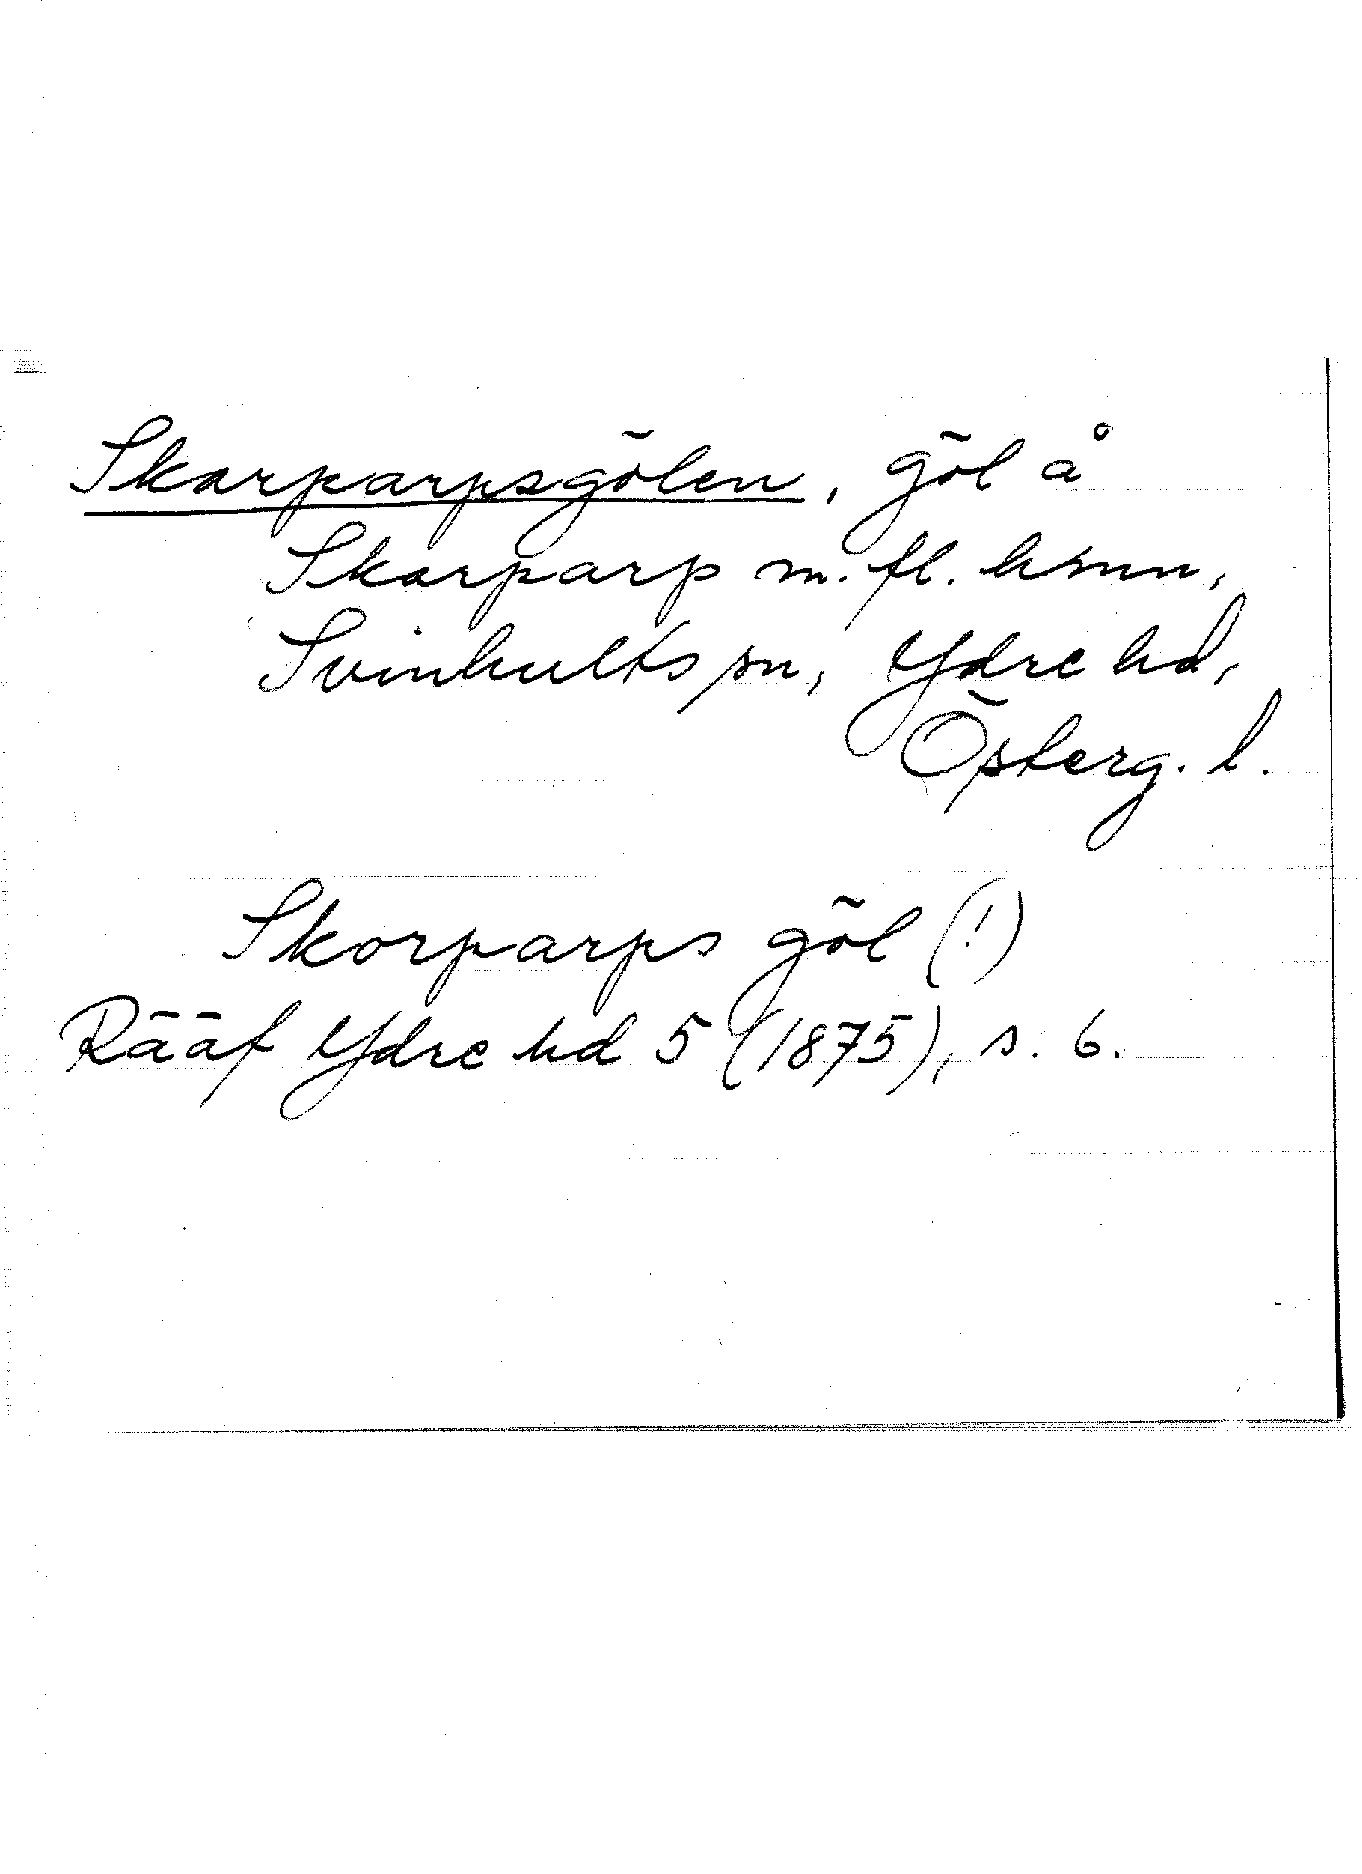 Skarparpsgölen, göl å
Skarparp m.fl. hmn,
Svinhults sn, Ydre hd,
Österg. l.
Skorparps göl (!)
Rääf Ydre hd 5 (1875), s. 6.